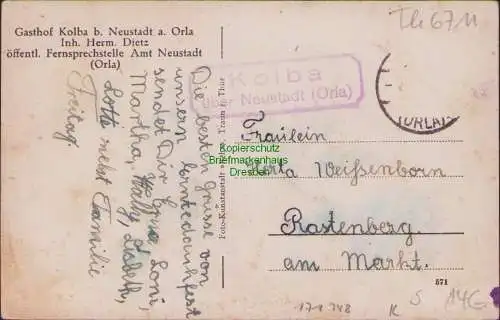 Gasthof Kolba b. Neustadt a. Orla
Inh. Herm. Dietz
öffentl. Fernsprechstelle Amt Neustadt
(Orla)
Kolba
über Neustadt (Orla)
(ORLA)
Th 67 11
Die besten Grüsse von
unserm Erntedankfest
sendet Dir Erna, Loni,
Martha, Elsbeth,
Lotte nebst Familie
Freitag
Foto-Kunstanstalt
Fräulein
Herta Weissenborn
Rastenberg
am Markt.
Kopierschutz
Briefmarkenhaus
Dresden
571
K
S
14G.